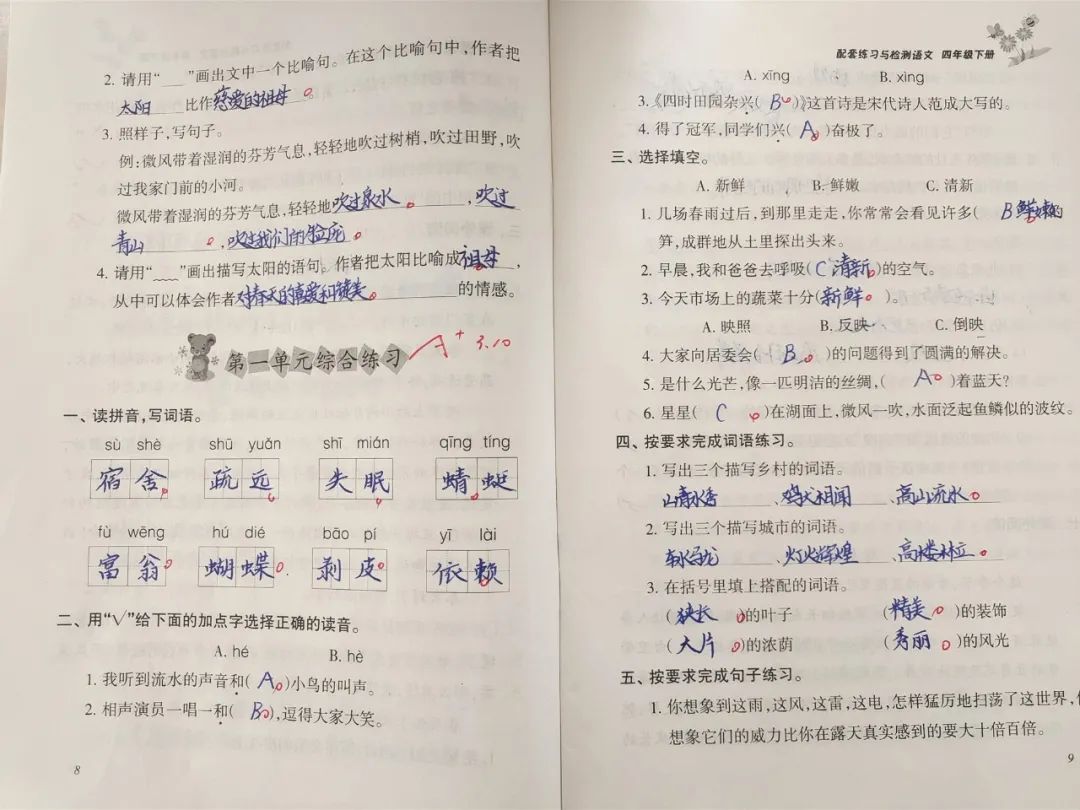 2. 请用“__”画出文中一个比喻句。在这个比喻句中,作者把
太阳 比作慈爱的祖母。
3. 照样子,写句子。
例:微风带着湿润的芬芳气息,轻轻地吹过树梢,吹过田野,吹
过我家门前的小河。
微风带着湿润的芬芳气息,轻轻地吹过泉水,吹过
青山,吹过我们的脸庞。
4. 请用“﹏﹏”画出描写太阳的语句。作者把太阳比喻成祖母,
从中可以体会作者对春天的喜爱和赞美的情感。
第一单元综合练习 A+ 3.10
一、读拼音,写词语。
sù shè shū yuǎn shī mián qīng tíng
宿舍 疏远 失眠 蜻蜓
fù wēng hú dié bāo pí yī lài
富翁 蝴蝶 剥皮 依赖
二、用“√”给下面的加点字选择正确的读音。
A. hé B. hè
1. 我听到流水的声音和( A )小鸟的叫声。
2. 相声演员一唱一和( B ),逗得大家大笑。
8
配套练习与检测语文 四年级下册
A. xīng B. xìng
3.《四时田园杂兴( B )》这首诗是宋代诗人范成大写的。
4. 得了冠军,同学们兴( A )奋极了。
三、选择填空。
A. 新鲜 B. 鲜嫩 C. 清新
1. 几场春雨过后,到那里走走,你常常会看见许多( B 鲜嫩的
笋,成群地从土里探出头来。
2. 早晨,我和爸爸去呼吸( C 清新 )的空气。
3. 今天市场上的蔬菜十分( 新鲜 )。
A. 映照 B. 反映 C. 倒映
4. 大家向居委会( B )的问题得到了圆满的解决。
5. 是什么光芒,像一匹明洁的丝绸,( A )着蓝天?
6. 星星( C )在湖面上,微风一吹,水面泛起鱼鳞似的波纹。
四、按要求完成词语练习。
1. 写出三个描写乡村的词语。
山清水秀、鸡犬相闻、高山流水
2. 写出三个描写城市的词语。
车水马龙、灯火辉煌、高楼林立
3. 在括号里填上搭配的词语。
( 狭长 )的叶子 ( 精美 )的装饰
( 大片 )的浓荫 ( 秀丽 )的风光
五、按要求完成句子练习。
1. 你想象到这雨,这风,这雷,这电,怎样猛厉地扫荡了这世界,
想象它们的威力比你在露天真实感到的要大十倍百倍。
9